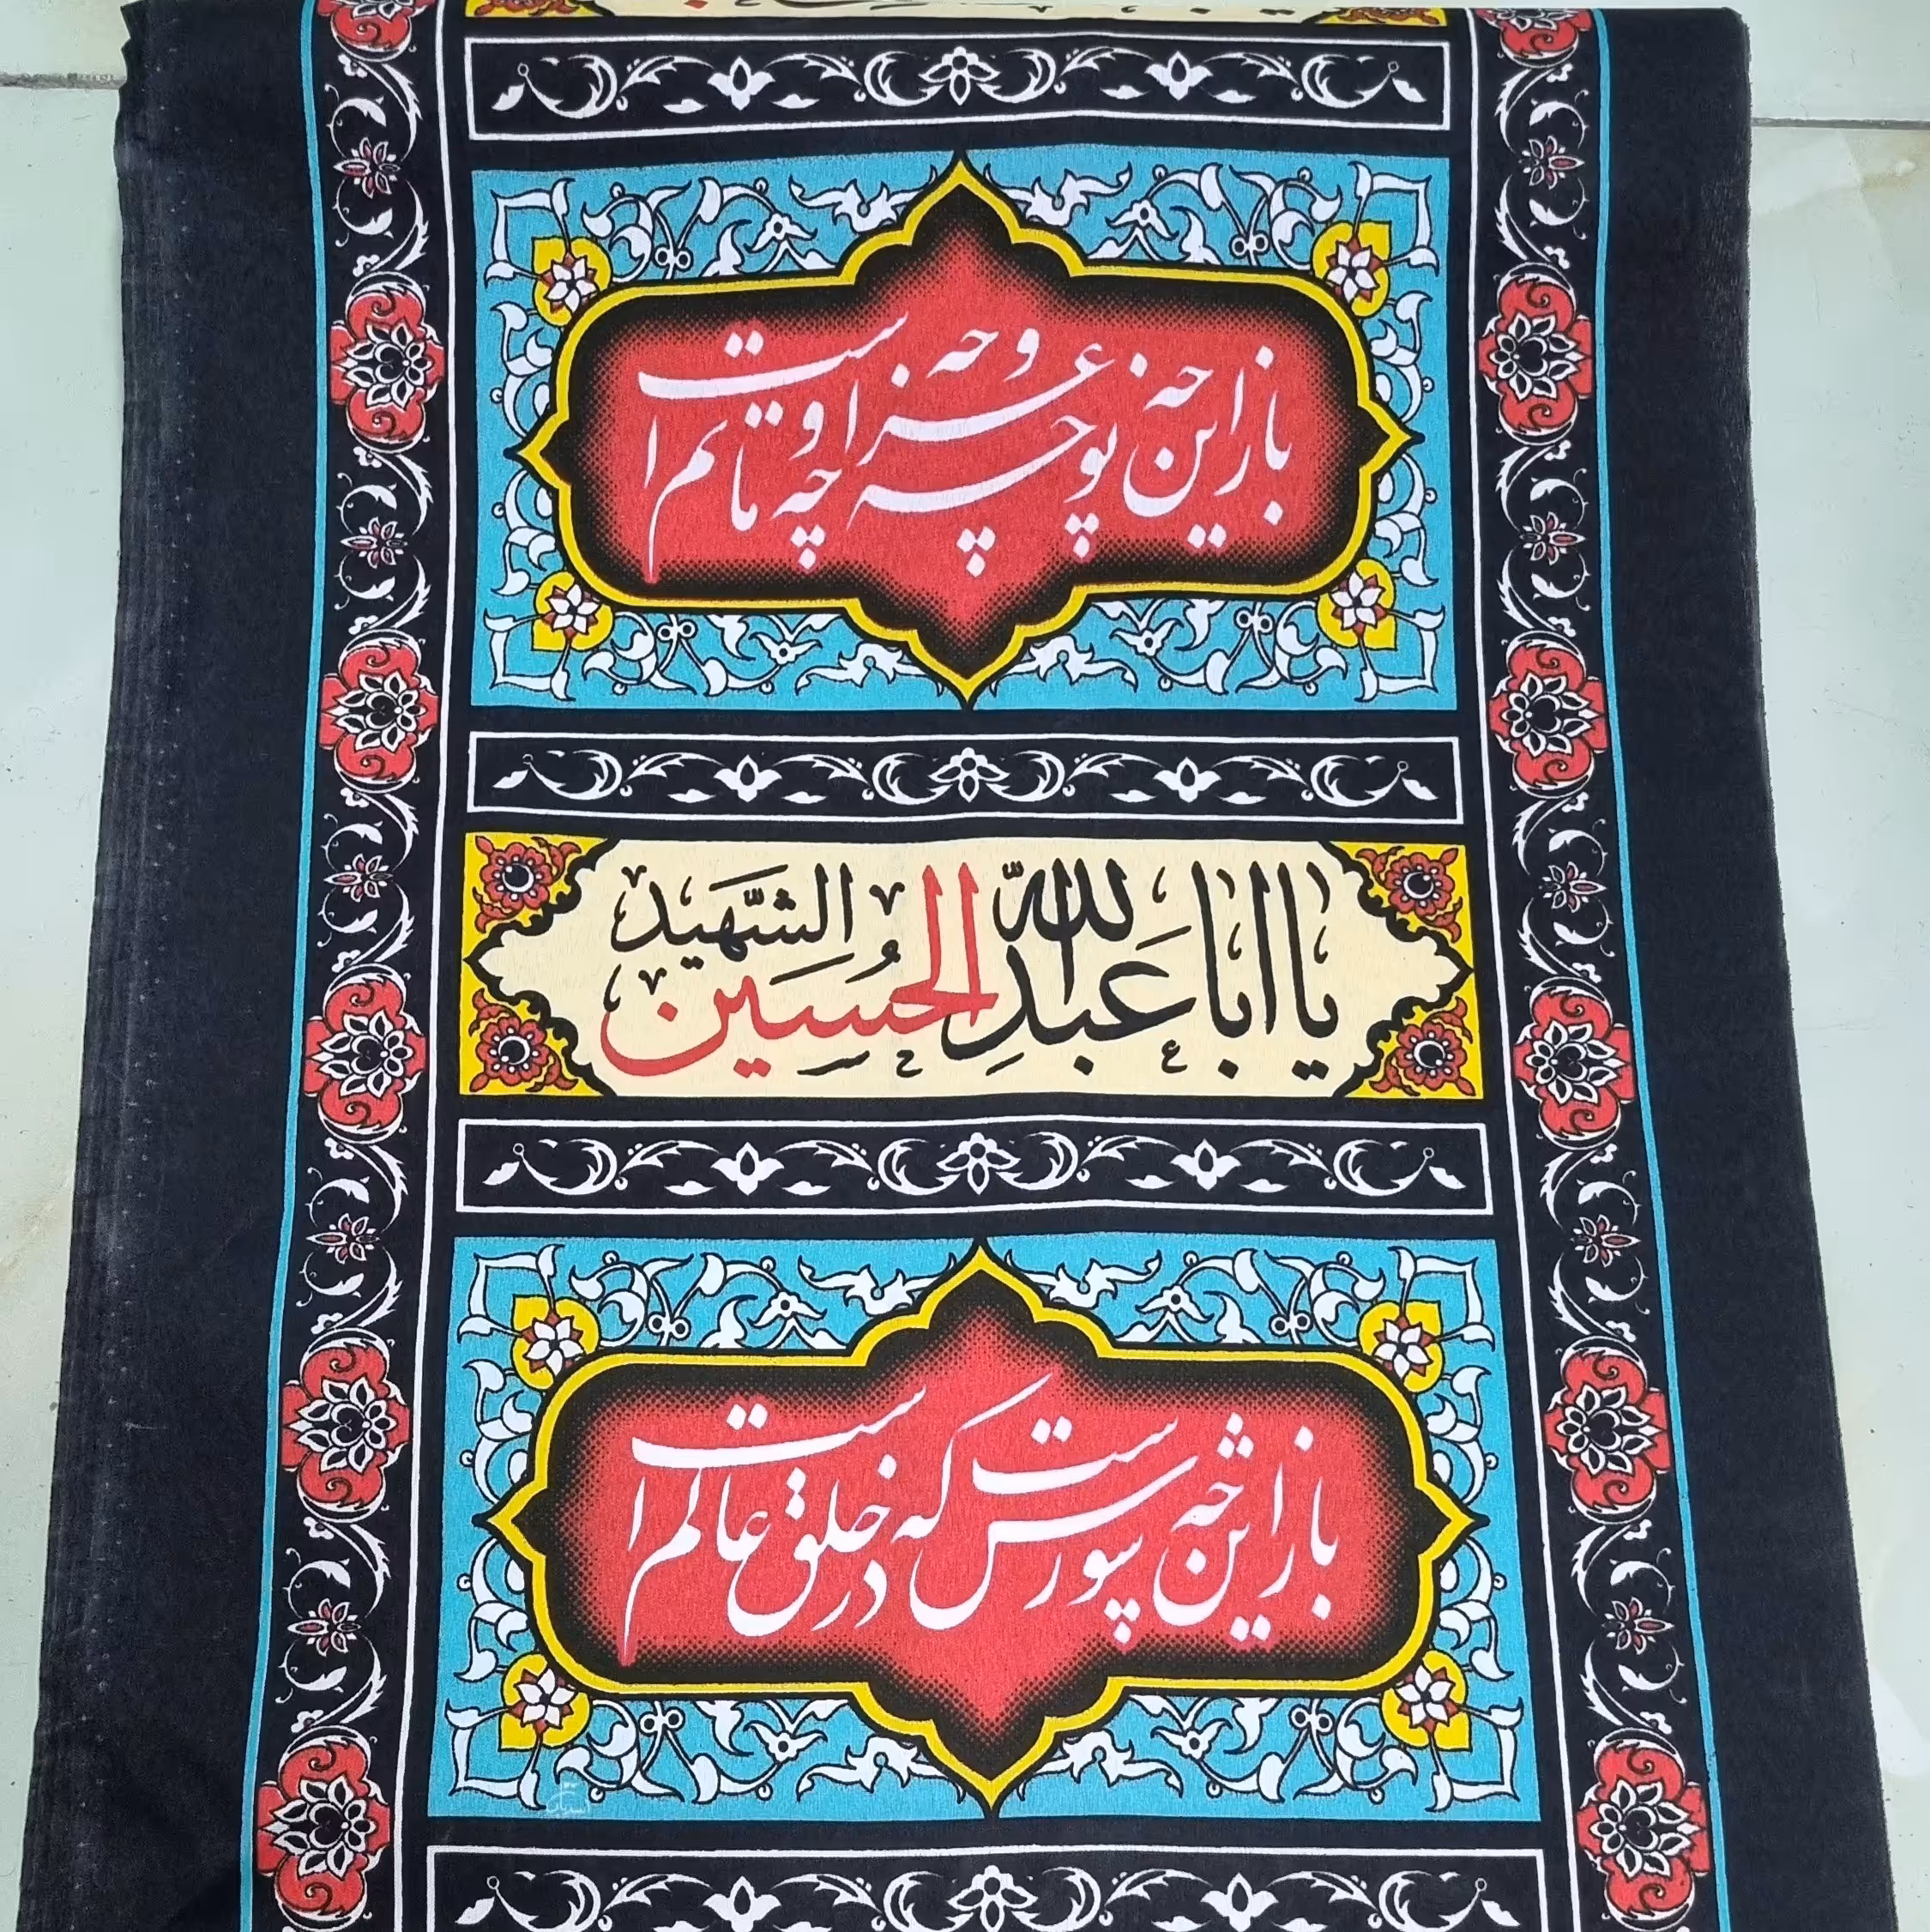 باز این چه نوحه و چه عزا و چه ماتم است
یا ابا عبدالله الحسین الشهید
باز این چه شورش است که در خلق عالم است